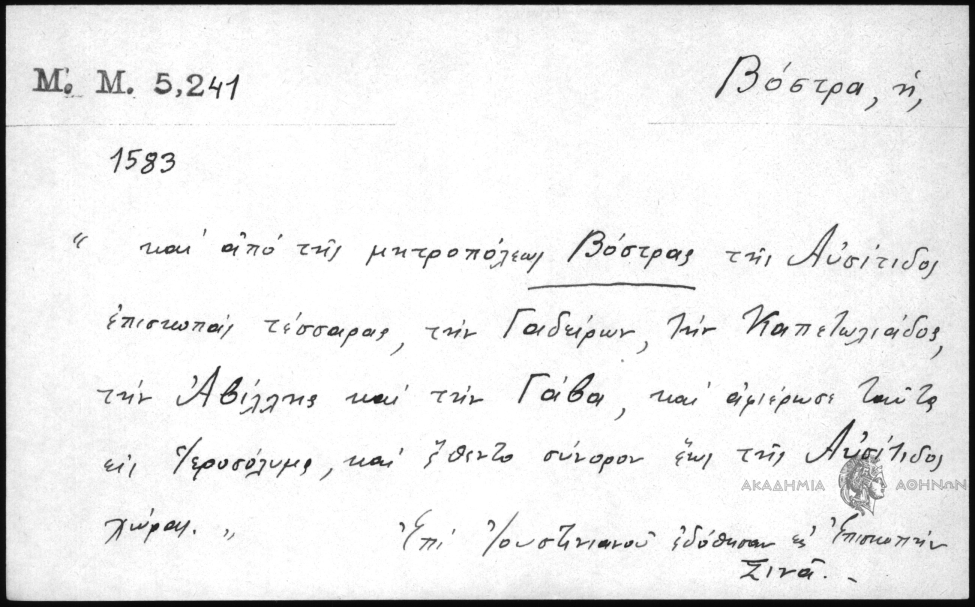 Μ. Μ. 5,241
Βόστρα, ἡ,
1583
“ καὶ ἀπὸ τῆς μητροπόλεως Βόστρας τῆς Αὐσίτιδος
ἐπισκοπὰς τέσσαρας, τὴν Γαδείρων, τὴν Καπετωλιάδος,
τὴν Ἀβίλλης καὶ τὴν Γάβα, καὶ ἀφιέρωσε ταῦτα
εἰς Ἱεροσόλυμα, καὶ ἔθεντο σύνορον ἕως τῆς Αὐσίτιδος
ΑΚΑΔΗΜΙΑ ΑΘΗΝΩΝ
χώρας. „
Ἐπὶ Ἰουστινιανοῦ ἐδόθησαν εἰς Ἐπισκοπὴν
Σινᾶ. –